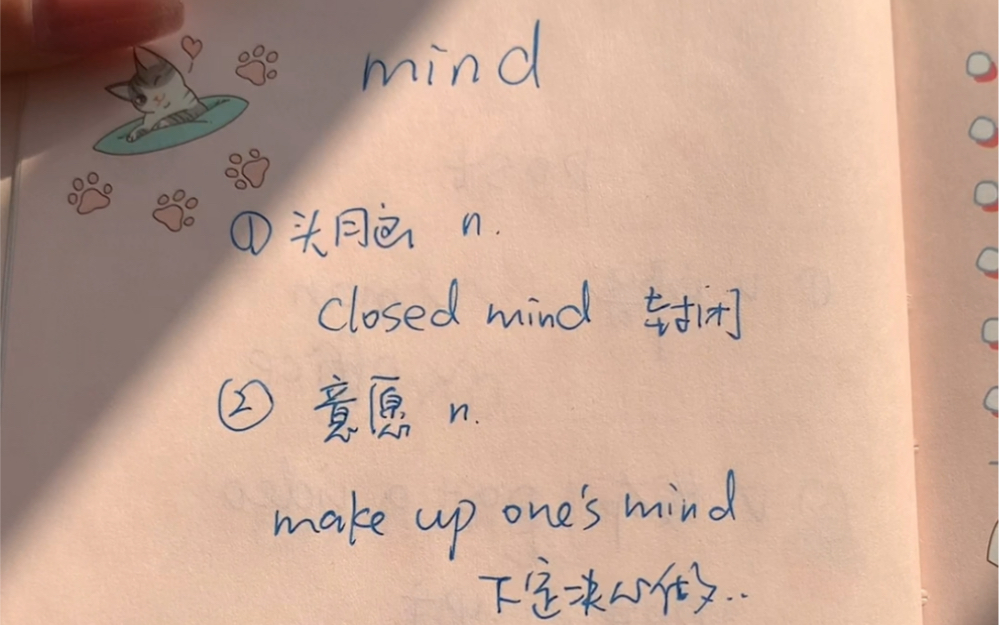 mind
① 头脑 n.
closed mind 封闭
② 意愿 n.
make up one's mind
下定决心做..